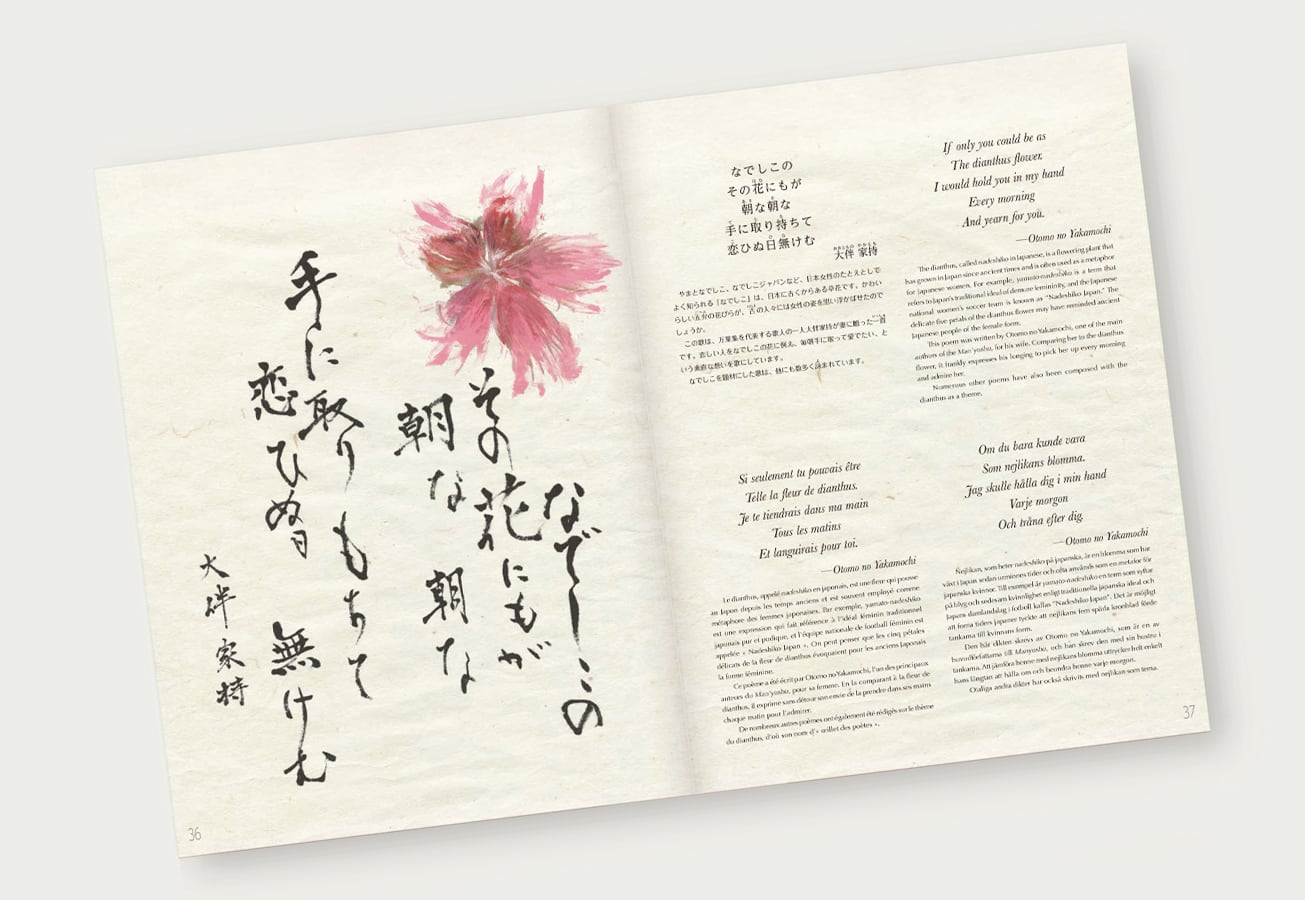 なでしこの
その花にもが
朝な朝な
手に取りもちて
恋ひぬ日
無けむ
大伴家持
36
なでしこの
その花にもが
朝な朝な
手に取り持ちて
恋ひぬ日無けむ
大伴 家持
やまとなでしこ、なでしこジャパンなど、日本女性のたとえとして
よく知られる「なでしこ」は、日本に古くからある草花です。かわい
らしい五弁の花びらが、古の人々には女性の姿を思い浮かばせたので
しょうか。
この歌は、万葉集を代表する歌人の一人大伴家持が妻に贈った一首
です。恋しい人をなでしこの花に例え、毎朝手に取って愛でたい、と
いう素直な想いを歌にしています。
なでしこを題材にした歌は、他にも数多く詠まれています。
If only you could be as
The dianthus flower.
I would hold you in my hand
Every morning
And yearn for you.
—Otomo no Yakamochi
The dianthus, called nadeshiko in Japanese, is a flowering plant that
has grown in Japan since ancient times and is often used as a metaphor
for Japanese women. For example, yamato-nadeshiko is a term that
refers to Japan's traditional ideal of demure femininity, and the Japanese
national women's soccer team is known as "Nadeshiko Japan." The
delicate five petals of the dianthus flower may have reminded ancient
Japanese people of the female form.
This poem was written by Otomo no Yakamochi, one of the main
authors of the Man'yoshu, for his wife. Comparing her to the dianthus
flower, it frankly expresses his longing to pick her up every morning
and admire her.
Numerous other poems have also been composed with the
dianthus as a theme.
Si seulement tu pouvais être
Telle la fleur de dianthus.
Je te tiendrais dans ma main
Tous les matins
Et languirais pour toi.
—Otomo no Yakamochi
Le dianthus, appelé nadeshiko en japonais, est une fleur qui pousse
au Japon depuis les temps anciens et est souvent employé comme
métaphore des femmes japonaises. Par exemple, yamato-nadeshiko
est une expression qui fait référence à l'idéal féminin traditionnel
japonais pur et pudique, et l'équipe nationale de football féminin est
appelée « Nadeshiko Japan ». On peut penser que les cinq pétales
délicats de la fleur de dianthus évoquaient pour les anciens Japonais
la forme féminine.
Ce poème a été écrit par Otomo no Yakamochi, l'un des principaux
auteurs du Man'yoshu, pour sa femme. En la comparant à la fleur de
dianthus, il exprime sans détour son envie de la prendre dans ses mains
chaque matin pour l'admirer.
De nombreux autres poèmes ont également été rédigés sur le thème
du dianthus, d'où son nom d'« œillet des poètes ».
Om du bara kunde vara
Som nejlikans blomma.
Jag skulle hålla dig i min hand
Varje morgon
Och tråna efter dig.
—Otomo no Yakamochi
Nejlikan, som heter nadeshiko på japanska, är en blomma som har
växt i Japan sedan urminnes tider och ofta används som en metafor för
japanska kvinnor. Till exempel är yamato-nadeshiko en term som syftar
på blyg och sedesam kvinnlighet enligt traditionella japanska ideal och
Japans damlandslag i fotboll kallas "Nadeshiko Japan". Det är möjligt
att forna tiders japaner tyckte att nejlikans fem spröda kronblad förde
tankarna till kvinnans form.
Den här dikten skrevs av Otomo no Yakamochi, som är en av
huvudförfattarna till Manyoshu, och han skrev den med sin hustru i
tankarna. Att jämföra henne med nejlikans blomma uttrycker helt enkelt
hans längtan att hålla om och beundra henne varje morgon.
Otaliga andra dikter har också skrivits med nejlikan som tema.
37